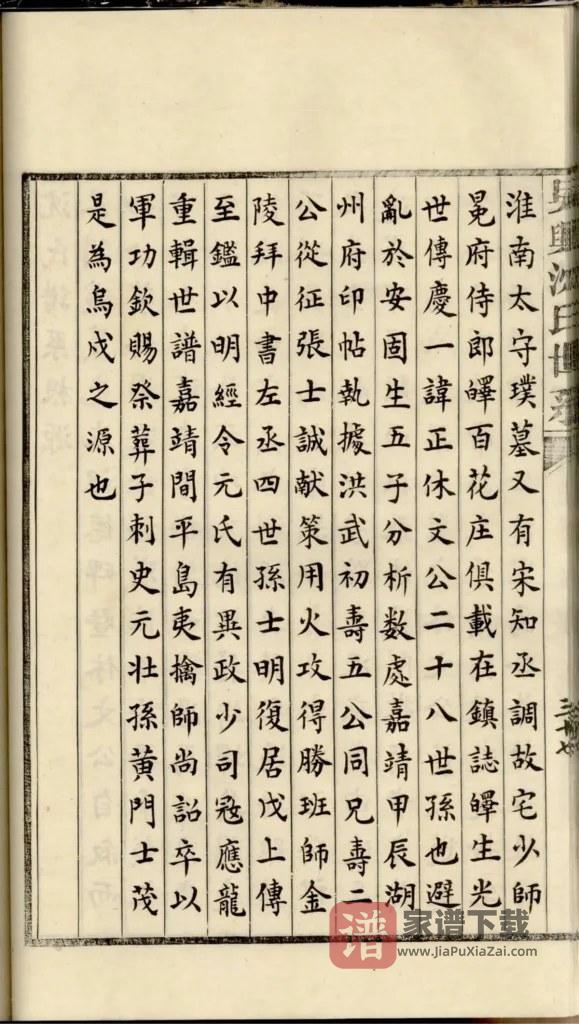 淮南太守璞墓又有宋知丞調故宅少師
冕府侍郎皥百花庄俱載在鎮誌皥生光
世傳慶一諱正休文公二十八世孫也避
亂於安固生五子分析数處嘉靖甲辰湖
州府印帖執據洪武初壽五公同兄壽二
公從征張士誠献策用火攻得勝班師金
陵拜中書左丞四世孫士明復居戊上傳
至鑑以明經令元氏有異政少司冦應龍
重輯世譜嘉靖間平島夷擒師尚詔卒以
軍功欽賜祭葬子刺史元壮孫黄門士茂
是為烏戍之源也
吳興沈氏世系
家谱下载
www.JiaPuXiaZai.com
谱